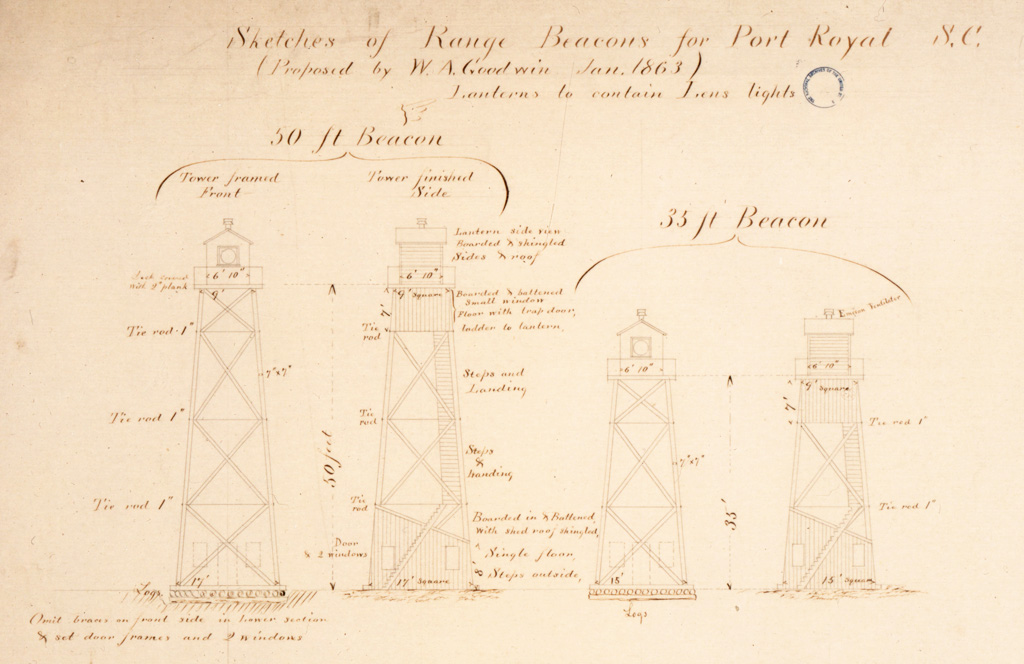 Sketches of Range Beacons for Port Royal S.C.
(Proposed by W. A. Goodwin Jan. 1863)
Lanterns to contain Lens lights
50 ft Beacon
Tower framed
Front
Tower finished
Side
Lantern side view
Boarded & shingled
Sides & roof
6' 10"
with 2" plank
9'
Tie rod 1"
7"x7"
Tie rod 1"
Tie rod 1"
17'
Logs
Omit braces on front side in Lower section
& set door frames and 2 windows
50 feet
6' 10"
9' Square
7'
Boarded & battened
Small window
Floor with trap door,
ladder to lantern,
Tie
rod
Steps and
Landing
Tie
rod
Steps
&
Landing
Tie
rod
Boarded in & Battened
with shed roof shingled,
Door
& 2 windows
Single floor,
8'
Steps outside,
17' Square
35 ft Beacon
6' 10"
7"x7"
15'
Logs
35'
Ventilator
6' 10"
9' Square
7'
Tie rod 1"
Tie rod 1"
15' Square